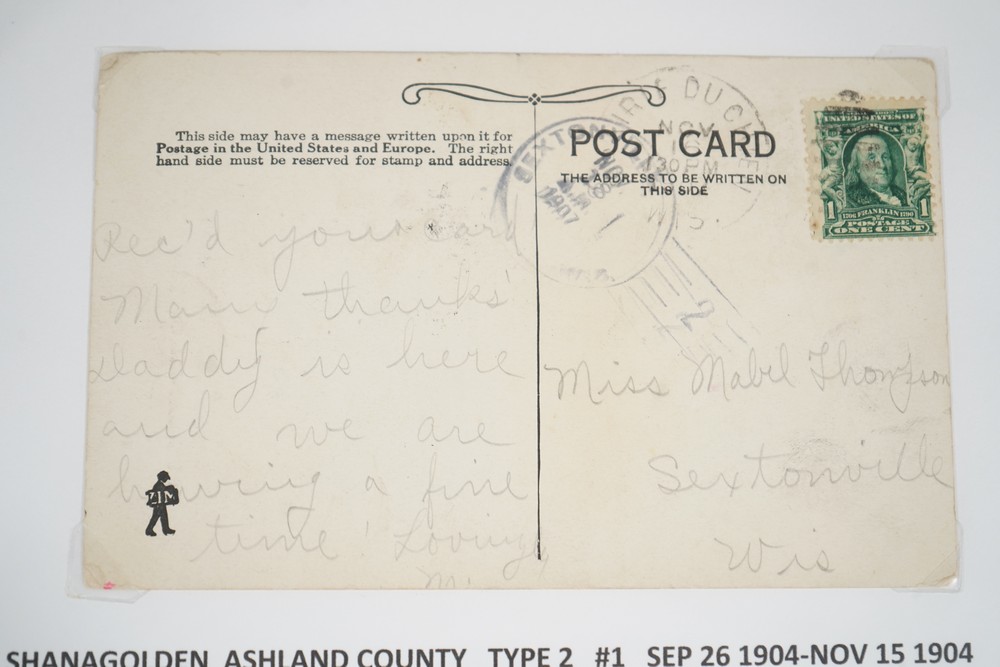 This side may have a message written upon it for
Postage in the United States and Europe. The right
hand side must be reserved for stamp and address.
POST CARD
THE ADDRESS TO BE WRITTEN ON
THIS SIDE
DU CH
NOV
430 PM
WIS.
SEXTON
NOV
1907
WIS.
2
UNITED STATES OF
AMERICA
1706 FRANKLIN 1790
1 1
POSTAGE
ONE CENT
Rec'd your card
Mam thanks
Daddy is here
and we are
having a fine
time! Lovingly
M.
ZIM
Miss Mabel Thompson
Sextonville
Wis
SHANAGOLDEN ASHLAND COUNTY TYPE 2 #1 SEP 26 1904-NOV 15 1904